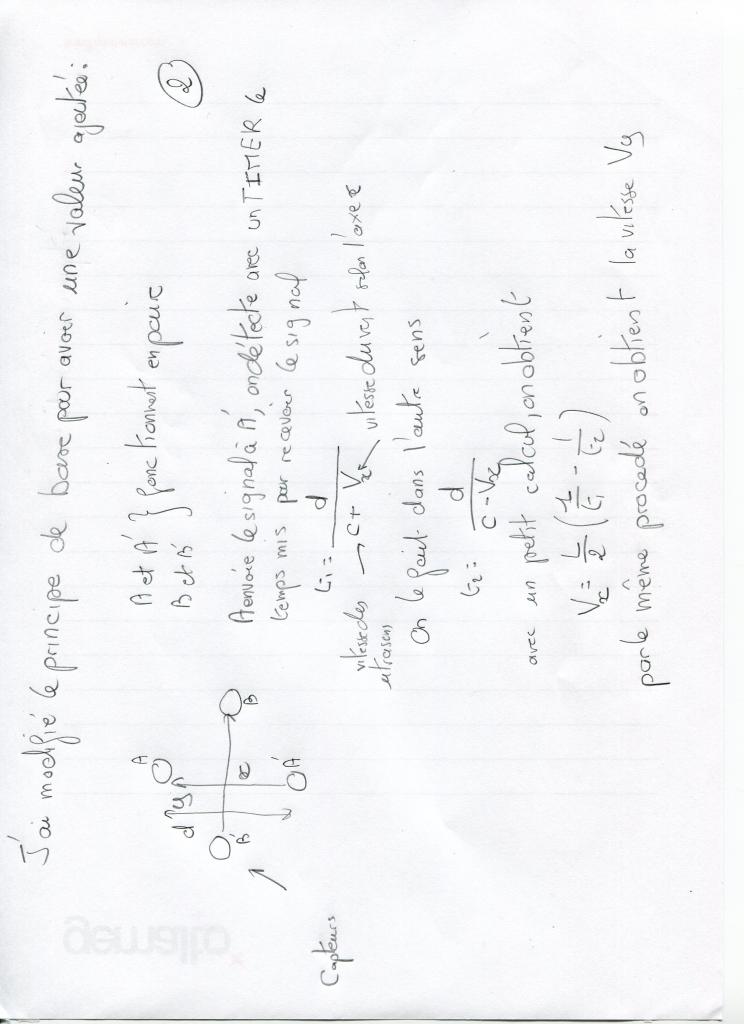 J'ai modifié le principe de base pour avoir une valeur ajoutée :
②
A et A' } fonctionnent en paire
B et B'
A envoie le signal à A', on détecte avec un TIMER le
temps mis pour recevoir le signal
t1 = d / (c + Vx)
vitesse des ultrasons
vitesse du vent selon l'axe x
On le fait dans l'autre sens
t2 = d / (c - Vx)
avec un petit calcul, on obtient
Vx = L/2 (1/t1 - 1/t2)
par le même procédé on obtient la vitesse Vy
A
d
y
x
B
B'
A'
Capteurs
gemalto